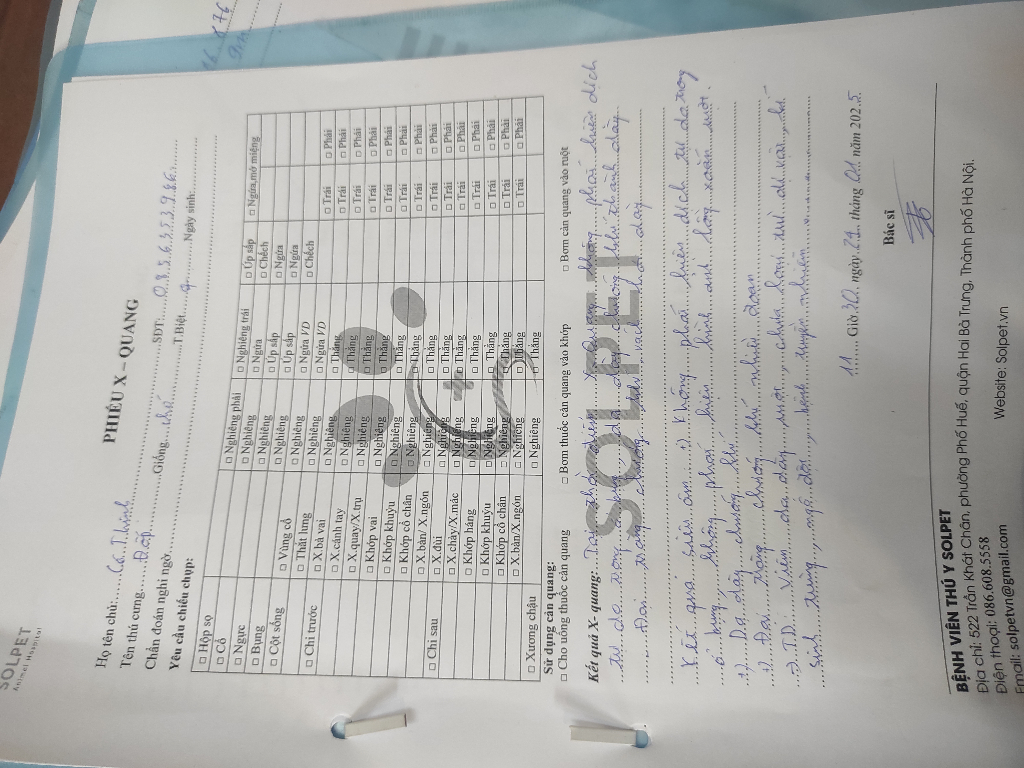 SOLPET
Animal Hospital
PHIẾU X – QUANG
Họ tên chủ:....Cô Thịnh.....SĐT:...0.8.5.6.5.5.3.9.86...
Tên thú cưng.....Đốp.....Giống...chó.....T.Biệt..♂......Ngày sinh:............
Chẩn đoán nghi ngờ............
Yêu cầu chiếu chụp:
□ Hộp sọ □ Nghiêng phải □ Nghiêng trái □ Úp sấp □ Ngửa, mở miệng
□ Cổ □ Nghiêng □ Ngửa □ Chếch
□ Ngực □ Nghiêng □ Úp sấp □ Ngửa
□ Bụng □ Nghiêng □ Úp sấp □ Ngửa
□ Cột sống □ Vùng cổ □ Nghiêng □ Ngửa VD □ Chếch
□ Thắt lưng □ Nghiêng □ Ngửa VD
□ Chi trước □ X.bả vai □ Nghiêng □ Thẳng □ Trái □ Phải
□ X.cánh tay □ Nghiêng □ Thẳng □ Trái □ Phải
□ X.quay/X.trụ □ Nghiêng □ Thẳng □ Trái □ Phải
□ Khớp vai □ Nghiêng □ Thẳng □ Trái □ Phải
□ Khớp khuỷu □ Nghiêng □ Thẳng □ Trái □ Phải
□ Khớp cổ chân □ Nghiêng □ Thẳng □ Trái □ Phải
□ X.bàn/ X.ngón □ Nghiêng □ Thẳng □ Trái □ Phải
□ Chi sau □ X.đùi □ Nghiêng □ Thẳng □ Trái □ Phải
□ X.chày/X.mác □ Nghiêng □ Thẳng □ Trái □ Phải
□ Khớp háng □ Nghiêng □ Thẳng □ Trái □ Phải
□ Khớp khuỷu □ Nghiêng □ Thẳng □ Trái □ Phải
□ Khớp cổ chân □ Nghiêng □ Thẳng □ Trái □ Phải
□ X.bàn/X.ngón □ Nghiêng □ Thẳng □ Trái □ Phải
□ Xương chậu □ Nghiêng □ Thẳng
Sử dụng cản quang:
□ Cho uống thuốc cản quang □ Bơm thuốc cản quang vào khớp □ Bơm cản quang vào ruột
Kết quả X- quang: Tại thời điểm X Quang không phát hiện dịch
tự do trong ổ bụng, dạ dày chướng khí thành dày
Đại tràng chướng khí vách khá dày
Kết quả siêu âm: Không phát hiện dịch tự do trong
ổ bụng, không phát hiện hình ảnh lồng xoắn ruột.
+) Dạ dày chướng khí
+) Đại tràng chướng khí nhiều đoạn
=) T.D: Viêm dạ dày ruột, chưa loại trừ dị vật, dị
sinh trùng, ngộ độc, bệnh truyền nhiễm
11...... Giờ 20 ngày 21 tháng 01 năm 2025.
Bác sĩ
SOLPET
BỆNH VIỆN THÚ Y SOLPET
Địa chỉ: 522 Trần Khát Chân, phường Phố Huế, quận Hai Bà Trưng, Thành phố Hà Nội.
Điện thoại: 086.608.5558
Email: solpethn@gmail.com Website: Solpet.vn